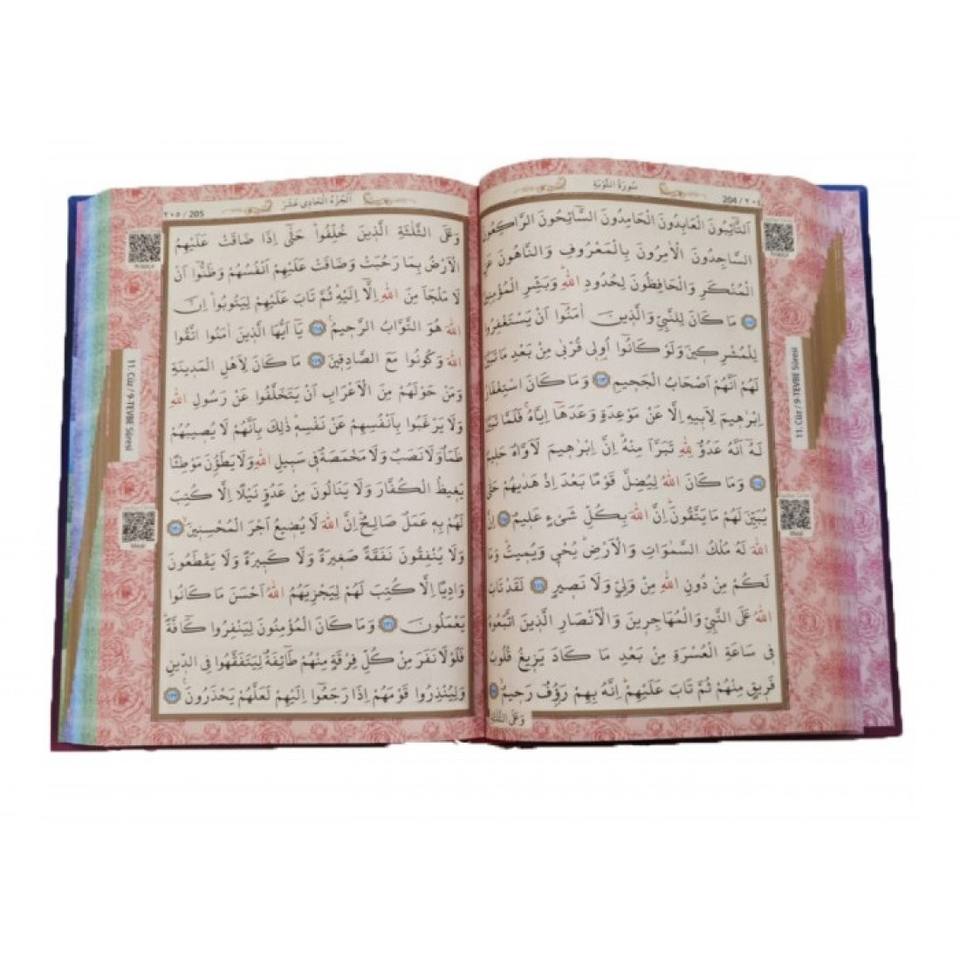 204 / ٢٠٤
سُورَةُ التَّوْبَةِ
اَلتَّٓائِبُونَ الْعَابِدُونَ الْحَامِدُونَ السَّٓائِحُونَ الرَّاكِعُونَ
السَّاجِدُونَ الْاٰمِرُونَ بِالْمَعْرُوفِ وَالنَّاهُونَ عَنِ
الْمُنْكَرِ وَالْحَافِظُونَ لِحُدُودِ اللّٰهِ وَبَشِّرِ الْمُؤْمِنٖينَ
مَا كَانَ لِلنَّبِيِّ وَالَّذٖينَ اٰمَنُٓوا اَنْ يَسْتَغْفِرُوا
لِلْمُشْرِكٖينَ وَلَوْ كَانُٓوا اُو۬لٖي قُرْبٰى مِنْ بَعْدِ مَا تَبَيَّنَ
لَهُمْ اَنَّهُمْ اَصْحَابُ الْجَحٖيمِ وَمَا كَانَ اسْتِغْفَارُ
اِبْرٰهٖيمَ لِاَبٖيهِ اِلَّا عَنْ مَوْعِدَةٍ وَعَدَهَٓا اِيَّاهُۚ فَلَمَّا تَبَيَّنَ
لَهُٓ اَنَّهُ عَدُوٌّ لِلّٰهِ تَبَرَّاَ مِنْهُۜ اِنَّ اِبْرٰهٖيمَ لَاَوَّاهٌ حَلٖيمٌ
وَمَا كَانَ اللّٰهُ لِيُضِلَّ قَوْمًا بَعْدَ اِذْ هَدٰيهُمْ حَتّٰى
يُبَيِّنَ لَهُمْ مَا يَتَّقُونَۜ اِنَّ اللّٰهَ بِكُلِّ شَيْءٍ عَلٖيمٌ اِنَّ
اللّٰهَ لَهُ مُلْكُ السَّمٰوَاتِ وَالْاَرْضِۜ يُحْيٖ وَيُمٖيتُۜ وَمَا
لَكُمْ مِنْ دُونِ اللّٰهِ مِنْ وَلِيٍّ وَلَا نَصٖيرٍ لَقَدْ تَابَ
اللّٰهُ عَلَى النَّبِيِّ وَالْمُهَاجِرٖينَ وَالْاَنْصَارِ الَّذٖينَ اتَّبَعُوهُ
فٖي سَاعَةِ الْعُسْرَةِ مِنْ بَعْدِ مَا كَادَ يَزٖيغُ قُلُوبُ
فَرٖيقٍ مِنْهُمْ ثُمَّ تَابَ عَلَيْهِمْۜ اِنَّهُ بِهِمْ رَؤُ۫فٌ رَحٖيمٌ
وَعَلَى الثَّلٰثَةِ
11. Cüz / 9-TEVBE Sûresi
Meal
٢٠٥ / 205
اَلْجُزْءُ الْحَادٖي عَشَرَ
وَعَلَى الثَّلٰثَةِ الَّذٖينَ خُلِّفُواۜ حَتّٰٓى اِذَا ضَاقَتْ عَلَيْهِمُ
الْاَرْضُ بِمَا رَحُبَتْ وَضَاقَتْ عَلَيْهِمْ اَنْفُسُهُمْ وَظَنُّٓوا اَنْ
لَا مَلْجَاَ مِنَ اللّٰهِ اِلَّٓا اِلَيْهِۜ ثُمَّ تَابَ عَلَيْهِمْ لِيَتُوبُواۜ اِنَّ
اللّٰهَ هُوَ التَّوَّابُ الرَّحٖيمُ۟ يَٓا اَيُّهَا الَّذٖينَ اٰمَنُوا اتَّقُوا
اللّٰهَ وَكُونُوا مَعَ الصَّادِقٖينَ مَا كَانَ لِاَهْلِ الْمَدٖينَةِ
وَمَنْ حَوْلَهُمْ مِنَ الْاَعْرَابِ اَنْ يَتَخَلَّفُوا عَنْ رَسُولِ اللّٰهِ
وَلَا يَرْغَبُوا بِاَنْفُسِهِمْ عَنْ نَفْسِهٖۜ ذٰلِكَ بِاَنَّهُمْ لَا يُصٖيبُهُمْ
ظَمَاٌ وَلَا نَصَبٌ وَلَا مَخْمَصَةٌ فٖي سَبٖيلِ اللّٰهِ وَلَا يَطَؤُ۫نَ مَوْطِئًا
يَغٖيظُ الْكُفَّارَ وَلَا يَنَالُونَ مِنْ عَدُوٍّ نَيْلًا اِلَّا كُتِبَ
لَهُمْ بِهٖ عَمَلٌ صَالِحٌۜ اِنَّ اللّٰهَ لَا يُضٖيعُ اَجْرَ الْمُحْسِنٖينَ
وَلَا يُنْفِقُونَ نَفَقَةً صَغٖيرَةً وَلَا كَبٖيرَةً وَلَا يَقْطَعُونَ
وَادِيًا اِلَّا كُتِبَ لَهُمْ لِيَجْزِيَهُمُ اللّٰهُ اَحْسَنَ مَا كَانُوا
يَعْمَلُونَ وَمَا كَانَ الْمُؤْمِنُونَ لِيَنْفِرُوا كَٓافَّةًۜ
فَلَوْلَا نَفَرَ مِنْ كُلِّ فِرْقَةٍ مِنْهُمْ طَٓائِفَةٌ لِيَتَفَقَّهُوا فِي الدّٖينِ
وَلِيُنْذِرُوا قَوْمَهُمْ اِذَا رَجَعُٓوا اِلَيْهِمْ لَعَلَّهُمْ يَحْذَرُونَ
11. Cüz / 9-TEVBE Sûresi
Meal